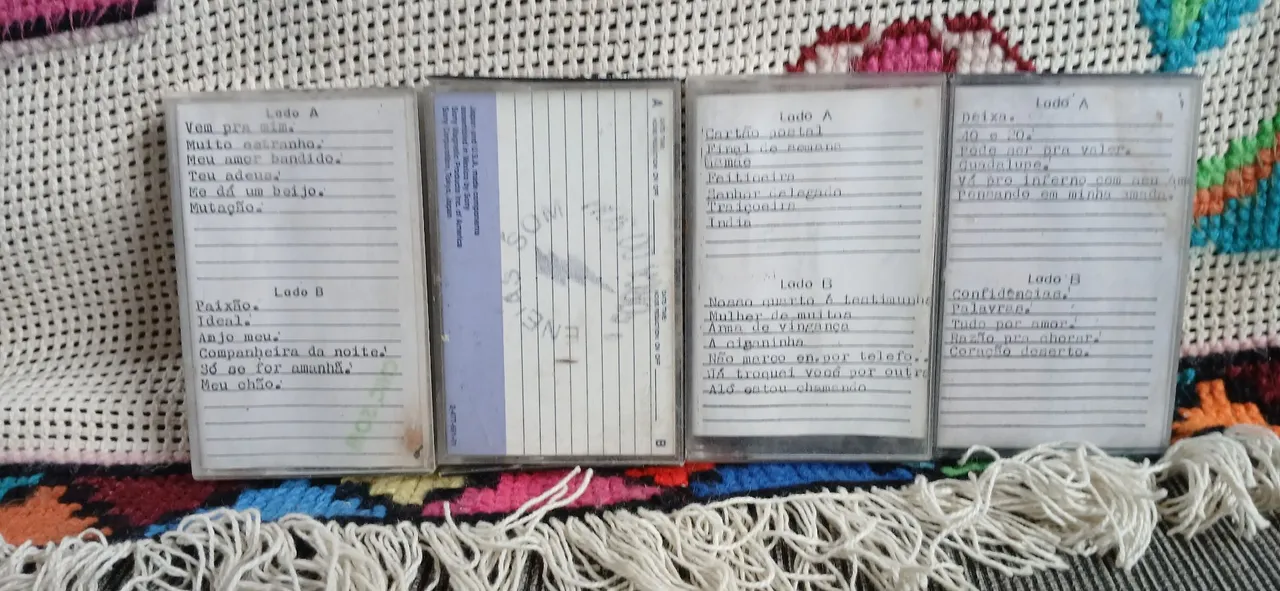 Lado A
Vem pra mim.
Muito estranho.
Meu amor bandido.
Teu adeus.
Me dá um beijo.
Mutação.
Lado B
Paixão.
Ideal.
Anjo meu.
Companheira da noite.
Só se for amanhã.
Meu chão.
A
B
Japan and U.S.A. made components
assembled in Mexico by Sony
Sony Magnetic Products Inc. of America
Sony Corporation, Tokyo, Japan
SOM
ENEIAS
Lado A
Cartão postal
Final de semana
Gamae
Feiticeira
Senhor delegado
Traiçoeira
India
Lado B
Nosso quarto é testimunha
Mulher de muitos
Arma de vingança
A ciganinha
Não marco en.por telefo..
Já troquei você por outra
Alô estou chamando
Lado A
Deixa.
40 e 20.
Pode ser pra valer.
Guadalupe.
Vá pro inferno com seu am
Pensando em minha amada.
Lado B
Confidências.
Palavras.
Tudo por amor.
Razão pra chorar.
Coração deserto.